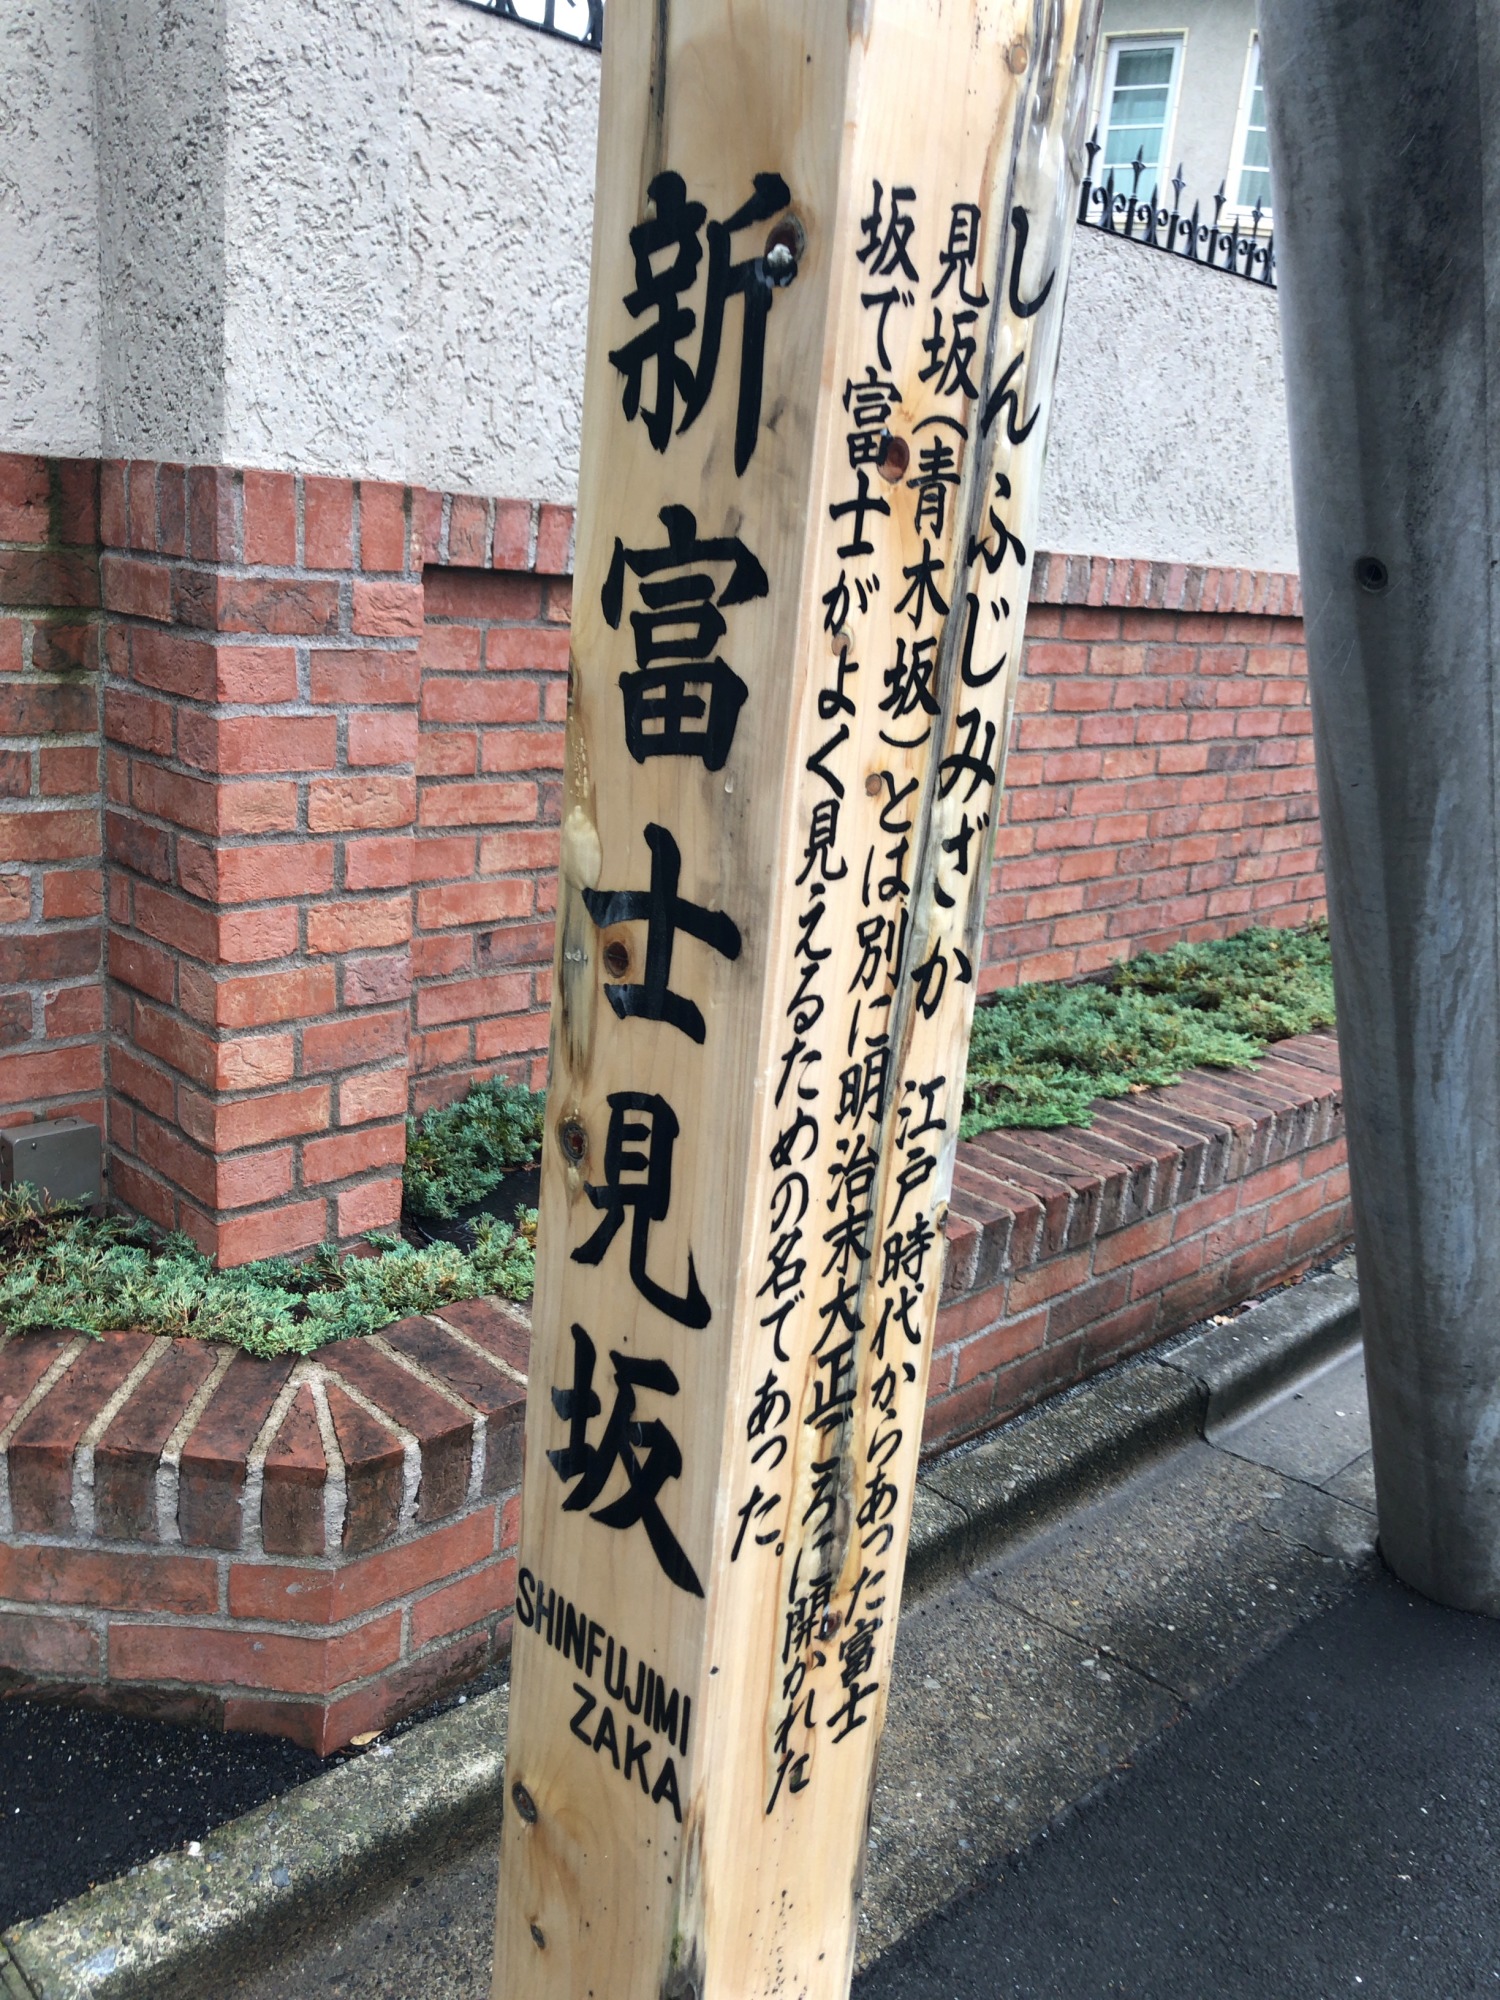 新富士見坂
SHINFUJIMI
ZAKA
しんふじみざか 江戸時代からあった富士
見坂(青木坂)とは別に明治末大正ごろに開かれた
坂で富士がよく見えるための名であった。